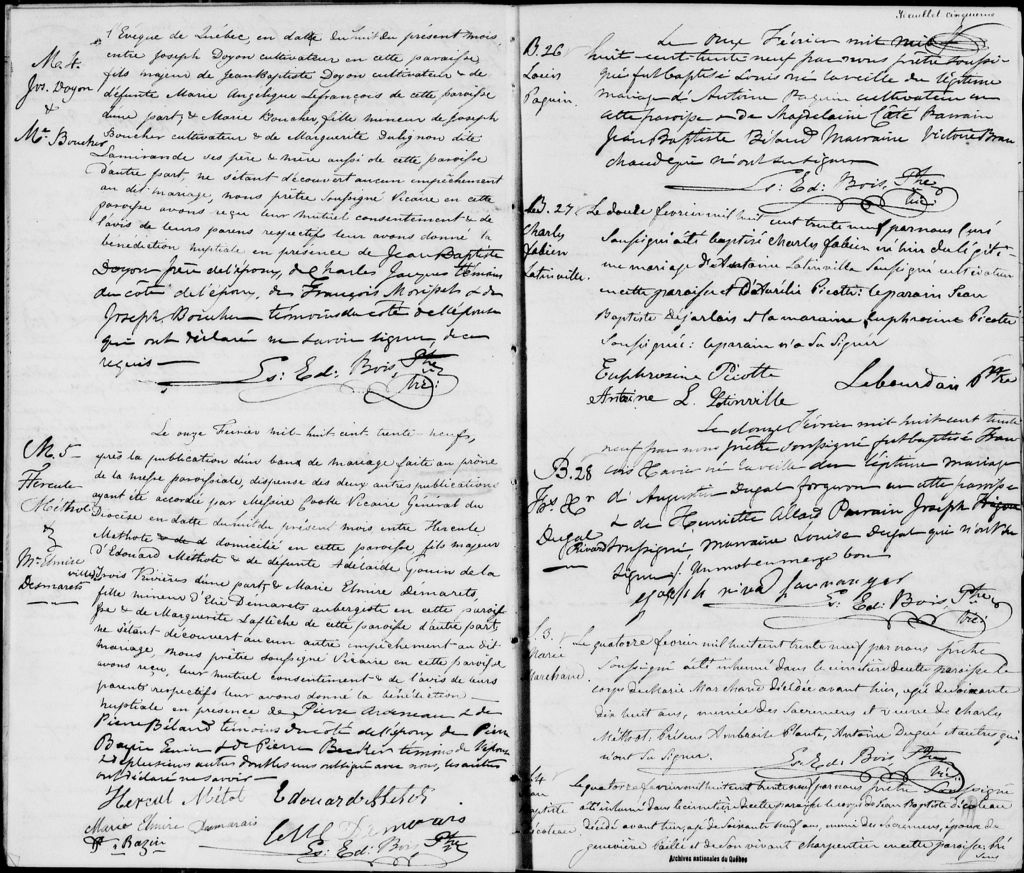 l'Evêque de Québec, en datte du huit du présent mois,
M. 4.
Jos. Doyon
&
Me. Boucher
entre Joseph Doyon cultivateur en cette paroisse
fils majeur de Jean Baptiste Doyon cultivateur & de
défunte Marie Angelique Lefrançois de cette paroisse
d'une part, & Marie Boucher, fille mineur de Joseph
Boucher cultivateur & de Marguerite Dulignon dite
Lamirande ses père & mère aussi de cette paroisse
d'autre part, ne s'étant découvert aucun empêchement
au dit mariage, nous prêtre soussigné Vicaire en cette
paroisse avons reçu leur mutuel consentement & de
l'avis de leurs parens respectifs leur avons donné la
bénédiction nuptiale en présence de Jean Baptiste
Doyon frère de l'époux, de Charles Jacques témoins
du côté de l'époux, de François & de
Joseph Boucher témoins du coté de l'épouse
qui ont déclaré ne savoir signer de ce
requis —
Ls: Ed: Bois, Ptre
Vic:
M. 5 —
Hercule
Méthot
&
Me. Elmire
Desmarets
Le onze Fevrier mil-huit cent-trente-neuf,
après la publication d'un banc de mariage faite au prône
de la messe paroissiale, dispense des deux autres publications
ayant été accordée par Messire Cooke Vicaire Général du
Diocèse en datte du huit du présent mois entre Hercule
Methote domicilié en cette paroisse, fils majeur
d'Edouard Methote & de defunte Adelaide de la
ville des Trois Rivières d'une part, & Marie Elmire Demarets,
fille mineur d'Elie Demarets aubergiste en cette paroisse
& de Marguerite Laflèche de cette paroisse d'autre part,
ne s'étant découvert aucun autre empêchement au dit
mariage, nous prêtre soussigné Vicaire en cette paroisse
avons reçu leur mutuel consentement & de l'avis de leurs
parents respectifs leur avons donné la bénédiction
nuptiale en présence de Pierre & de
Pierre Béland témoins du côté de l'époux de Pierre
Bazin & de Pierre témoins de l'épouse
& de plusieurs autres dont les uns ont signé avec nous, les autres
ont déclaré ne savoir —
Hercul Métot Edouard Methot
Marie Elmire Desmarais
P. Bazin
Ls: Ed: Bois, Ptre
Feuillet cinquieme
B. 26
Louis
Paquin.
Le onze Février mil
huit-cent-trente neuf par nous prêtre soussi-
gné fut baptisé Louis né la veille du légitime
mariage d'Antoine Paquin cultivateur en
cette paroisse & de Magdelaine Côté Parrain
Jean Baptiste Béland Marraine Victoire Bran
chaud qui n'ont su signer
Ls: Ed: Bois, Ptre
Vic:
B. 27
Charles
Fabien
Latinville.
Le douze fevrier mil huit cent trente neuf par nous curé
soussigné a été baptisé Charles Fabien né hier du légiti-
me mariage d'Antoine Latinville soussigné cultivateur
en cette paroisse et D'Aurélie Picotte: le parain Jean
Baptiste Desjarlais et la maraine Euphrosine Picotte
soussignée: le parain n'a su signer
Euphrosine Picotte
Antoine L. Latinville
Lebourdais Ptre
B. 28
Frs Xr
Dugal
Le douze Février mil-huit-cent trente
neuf par nous prêtre soussigné fut baptisé Fran
cois Xavier né la veille du légitime mariage
d'Augustin Dugal forgeron en cette paroisse
& de Henriette Allard Parrain Joseph
Rivard soussigné, marraine Louise Dugal qui n'ont su
signer /. Un mot en marge bon
Joseph rivard
Ls: Ed: Bois, Ptre
Vic:
S. 3.
Marie
Marchand.
Le quatorze fevrier mil huit cent trente neuf par nous prêtre
soussigné a été inhumé dans le cimetière de cette paroisse le
corps de Marie Marchand décédée avant hier, agée de soixante
dix huit ans, munie des Sacremens et veuve de Charles
Méthot. Présens Ambroise Plante, Antoine Dugré & autres qui
n'ont su signer.
Ls. Ed: Bois, Ptre
Vic:
S. 4
Jean
Baptiste
Le quatorze fevrier mil huit cent trente neuf par nous prêtre soussigné
a été inhumé dans le cimetière de cette paroisse le corps de Jean Baptiste
décédé avant hier, agé de soixante neuf ans, munie des Sacremens, époux de
geneviève et de son vivant charpentier en cette paroisse. Pré
sens
Archives nationales du Québec